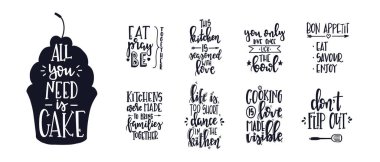 ALL
you
NEED
is
CAKE
EAT
pray
BE
TOGETHER
this
kitchen
is
seasoned
with
love
you only
live once
LICK
the
bowl
BON APPETIT
· EAT
· SAVOUR
· ENJOY
KITCHENS
were MADE
to BRING
families
TOGETHER
life is
TOO SHORT
dance
IN the
kitchen
COOKING
is love
MADE
visible
don't
FLIP OUT